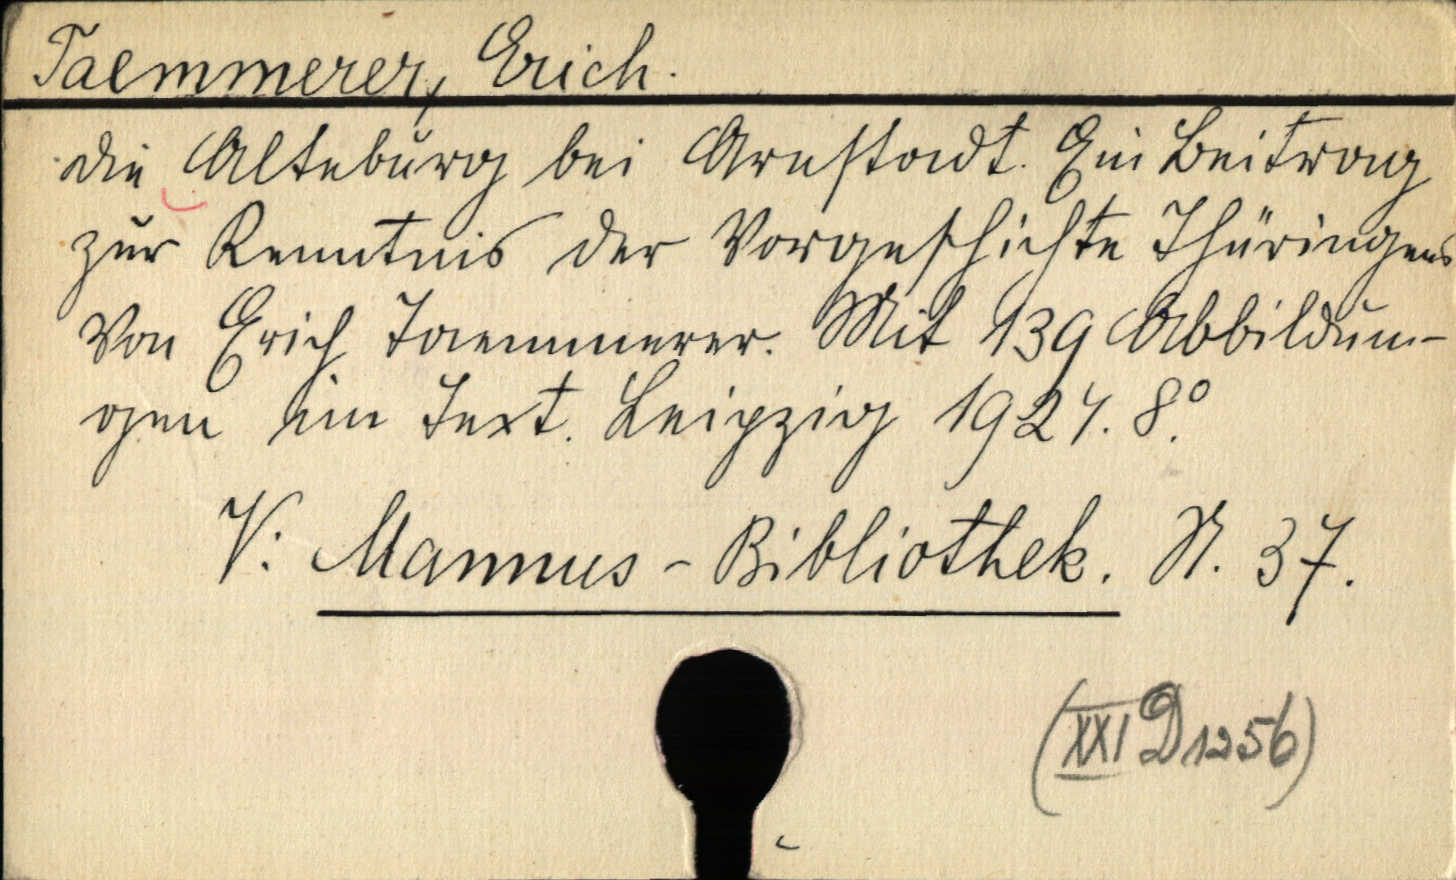 Taemmerer, Erich.
Die Alteburg bei Arnstadt. Ein Beitrag
zur Kenntnis der Vorgeschichte Thüringens
Von Erich Taemmerer. Mit 139 Abbildun-
gen im Text. Leipzig 1924. 8°.
V: Mannus-Bibliothek. N. 37.
(XXI D 1256)